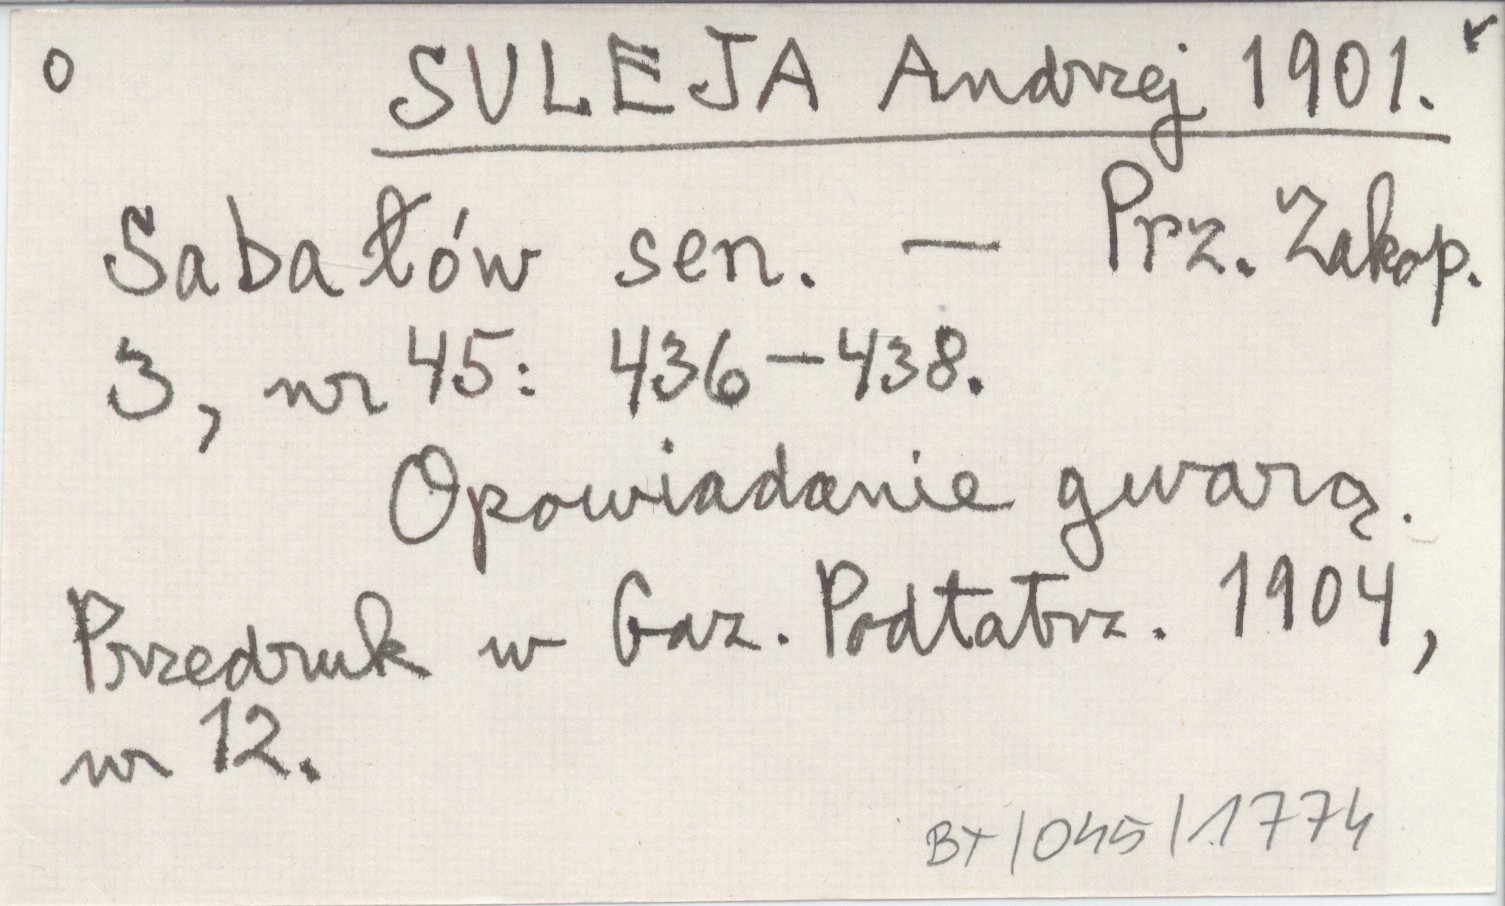 o SULEJA Andrzej 1901.
Sabałów sen. — Prz. Zakop.
3, nr 45: 436-438.
Opowiadanie gwarą.
Przedruk w Gaz. Podtatrz. 1904,
nr 12.
BT/045/1774